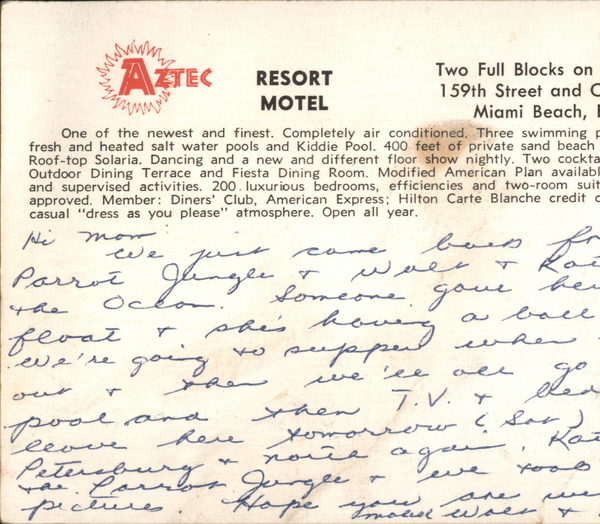 AZTEC RESORT MOTEL
Two Full Blocks on
159th Street and O
Miami Beach, F
One of the newest and finest. Completely air conditioned. Three swimming p
fresh and heated salt water pools and Kiddie Pool. 400 feet of private sand beach
Roof-top Solaria. Dancing and a new and different floor show nightly. Two cockta
Outdoor Dining Terrace and Fiesta Dining Room. Modified American Plan availab
and supervised activities. 200 luxurious bedrooms, efficiencies and two-room suit
approved. Member: Diners' Club, American Express; Hilton Carte Blanche credit c
casual "dress as you please" atmosphere. Open all year.
Hi Mom
We just came back fr
Parrot Jungle & Walt & Kat
the Ocean. Someone gave her
float & she's having a ball
We're going to supper when
out & then we'll all go
pool and then T.V. & bed
leave here tomorrow (Sat)
Petersburg & north again. Kat
the Parrot Jungle & we took
pictures. Hope you are we
Walt &